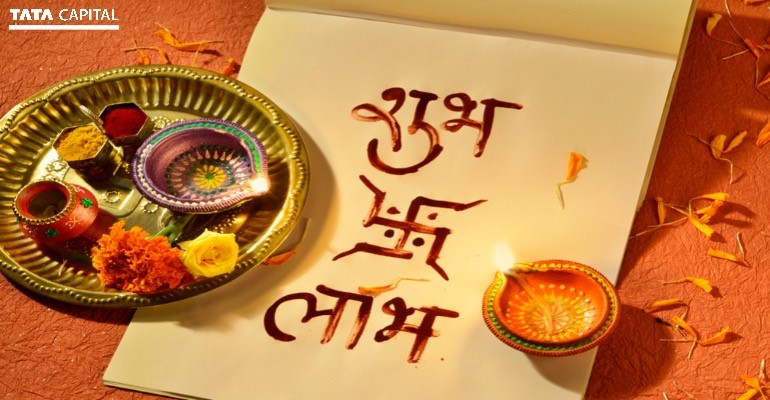 TATA CAPITAL
शुभ
लाभ